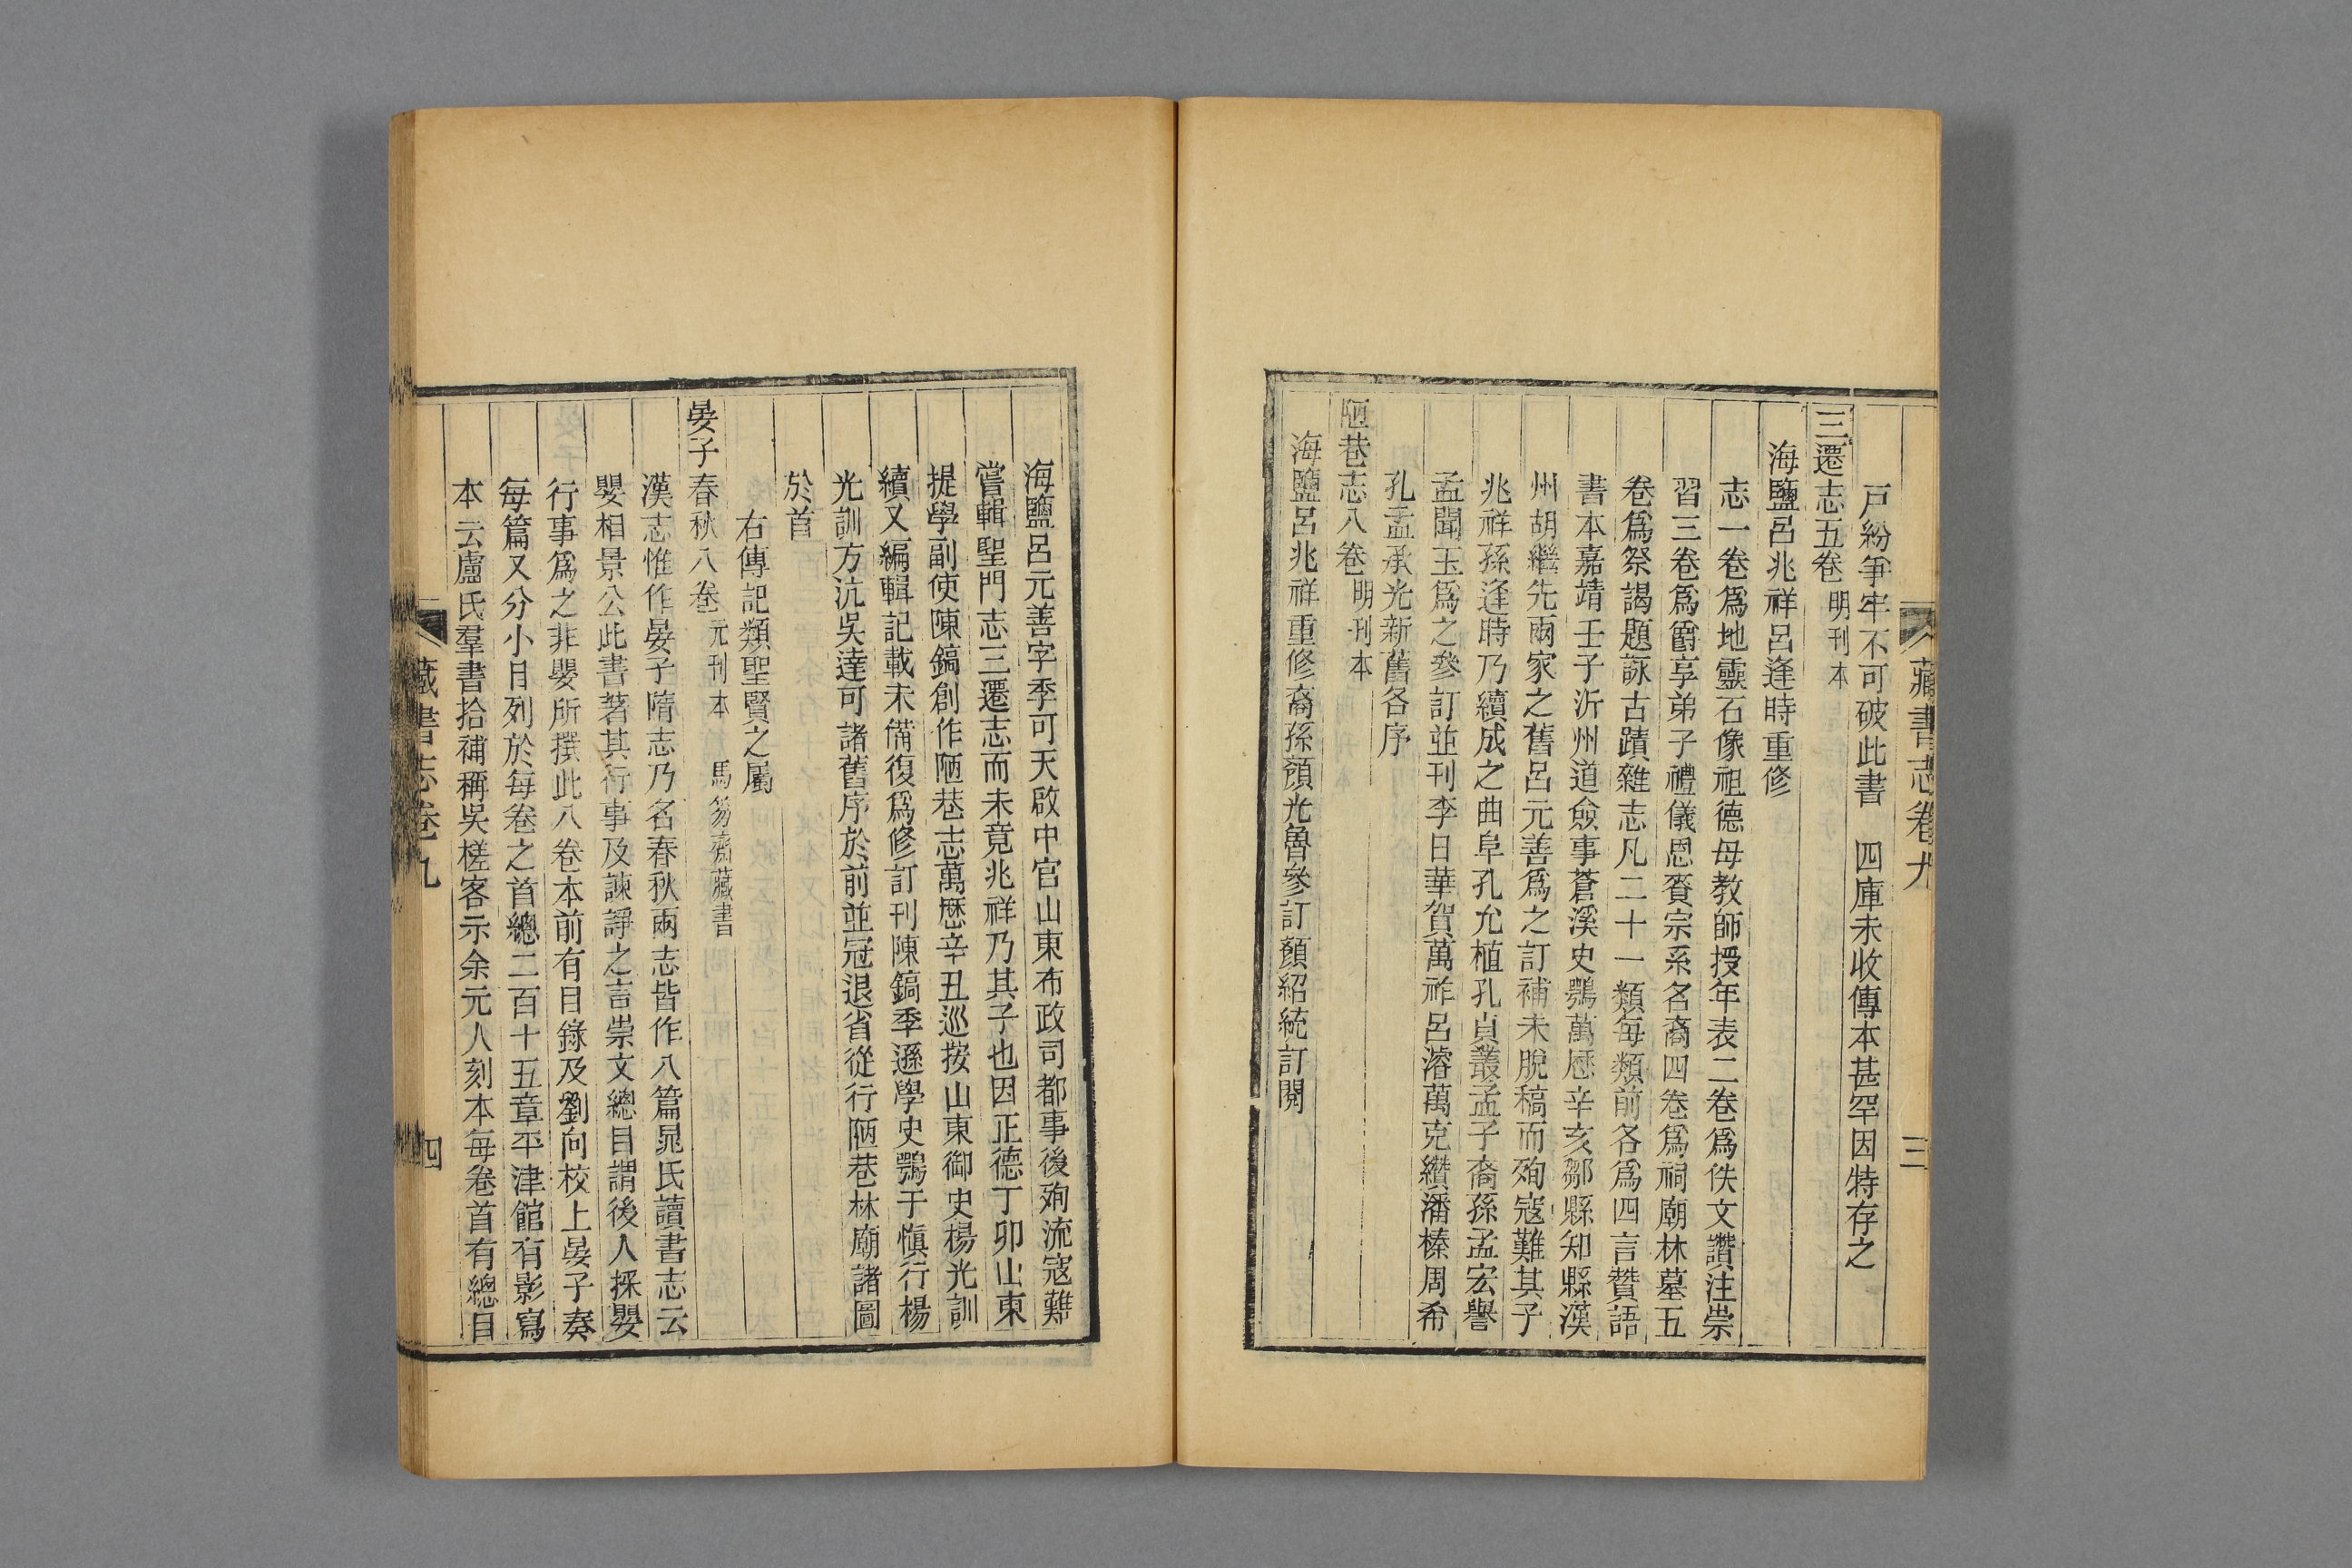 藏書志卷九
三
戸紛爭牢不可破此書　四庫未收傳本甚罕因特存之
三遷志五卷 明刊本
海鹽呂兆祥呂逢時重修
志一卷爲地靈石像祖德母敎師授年表二卷爲佚文讚注崇
習三卷爲爵享弟子禮儀恩賚宗系名裔四卷爲祠廟林墓五
卷爲祭謁題詠古蹟雜志凡二十一類每類前各爲四言贊語
書本嘉靖壬子沂州道僉事蒼溪史鶚萬歷辛亥鄒縣知縣漢
州胡繼先兩家之舊呂元善爲之訂補未脫稿而殉寇難其子
兆祥孫逢時乃續成之曲阜孔允植孔貞叢孟子裔孫孟宏譽
孟聞玉爲之參訂並刊李日華賀萬祚呂濬萬克纘潘榛周希
孔孟承光新舊各序
陋巷志八卷 明刊本
海鹽呂兆祥重修裔孫顏光魯參訂顏紹統訂閱
海鹽呂元善字季可天啟中官山東布政司都事後殉流寇難
嘗輯聖門志三遷志而未竟兆祥乃其子也因正德丁卯山東
提學副使陳鎬創作陋巷志萬歷辛丑巡按山東御史楊光訓
續又編輯記載未備復爲修訂刊陳鎬季遜學史鶚于愼行楊
光訓方沆吳達可諸舊序於前並冠退省從行陋巷林廟諸圖
於首
右傳記類聖賢之屬
晏子春秋八卷 元刊本 馬笏齋藏書
漢志惟作晏子隋志乃名春秋兩志皆作八篇晁氏讀書志云
嬰相景公此書著其行事及諫諍之言崇文總目謂後人採嬰
行事爲之非嬰所撰此八卷本前有目錄及劉向校上晏子奏
每篇又分小目列於每卷之首總二百十五章平津館有影寫
本云盧氏羣書拾補稱吳槎客示余元人刻本每卷首有總目
藏書志卷九
四